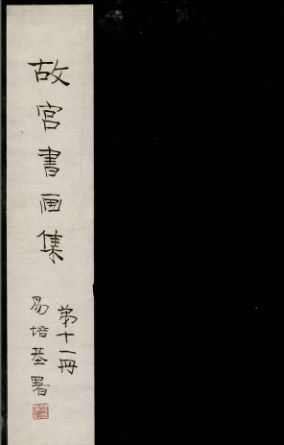 故宫書画集
第十一冊
易培基署